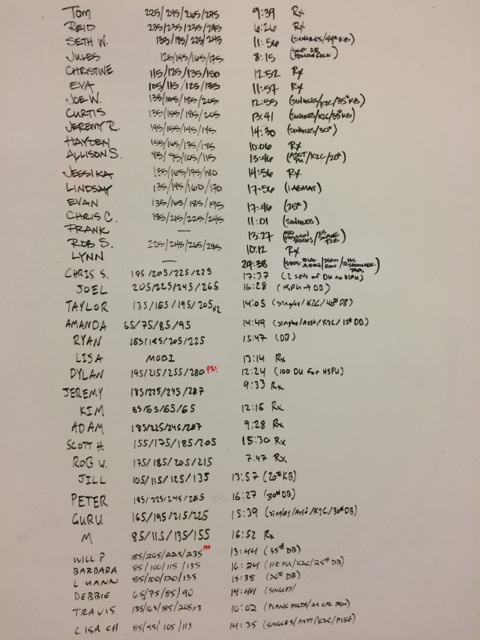 TOM 225/245/265/275 9:39 Rx
REID 235/235/235/245 6:26 Rx
SETH W. 135/185/225/245 11:56
JULES 125/145/165/175 8:15
CHRISTINE 115/125/135/150 12:52 Rx
EVA 105/115/125/185 11:57 Rx
JOE W. 135/185/195/205 12:55 (SINGLES/K2C/35# KB)
CURTIS 135/155/185/205 13:41 (SINGLES/K2C/35# KB)
JEREMY R. 145/155/145/145 14:30 (SINGLES/30#)
HAYDEN 155/165/175/185 10:06 Rx
ALLISON S. 85/95/105/115 13:46
JESSIKA 135/165/175/180 14:56 Rx
LINDSAY 135/145/160/170 17:56 (1 ABMAT)
EVAN 135/165/185/195 17:46 (25#)
CHRIS C. 185/215/225/245 11:01 (SINGLES)
FRANK — 13:27
ROB S. 225/245/265/285 10:12 Rx
LYNN — 29:38
CHRIS S. 195/205/225/225 17:37 (2 sets of DU no HSPU)
JOEL 205/225/245/265 16:28 (HSPU → DB)
TAYLOR 135/165/195/205x2 14:05 (singles/K2C/40# DB)
AMANDA 65/75/85/95 14:49 (singles/Asst/K2C/15# DB)
RYAN 165/185/205/225 15:47 (DB)
LISA MODI 13:14 Rx
DYLAN 195/215/255/280 PR 12:24 (100 DU for HSPU)
JEREMY 185/225/245/287 9:33 Rx
KIM 55/65/65/65 12:16 Rx
ADAM 185/225/245/287 9:28 Rx
SCOTT H. 155/175/185/205 15:30 Rx
ROB W. 175/185/205/215 7:47 Rx
JILL 105/115/125/135 13:57 (20# KB)
PETER 185/225/245/265 16:27 (30# DB)
GURU 165/195/215/225 15:39 (singles/Asst/K2C/30# DB)
M 85/115/135/155 16:52 Rx
WILL P 185/205/225/235 PR 13:44 (35# DB)
BARBARA 85/100/115/135 16:24 (HR PU/K2C/25# DB)
L MANN 85/100/120/135 15:38 (20# DB)
DEBBIE 65/75/85/90 14:44 (SINGLES/
TRAVIS 135/165/185/205x3 10:02 (PLANK HOLDS/25 CAL ROW)
LISA CH 85/95/105/113 14:35 (SINGLES/ASST/K2C/PIKE)